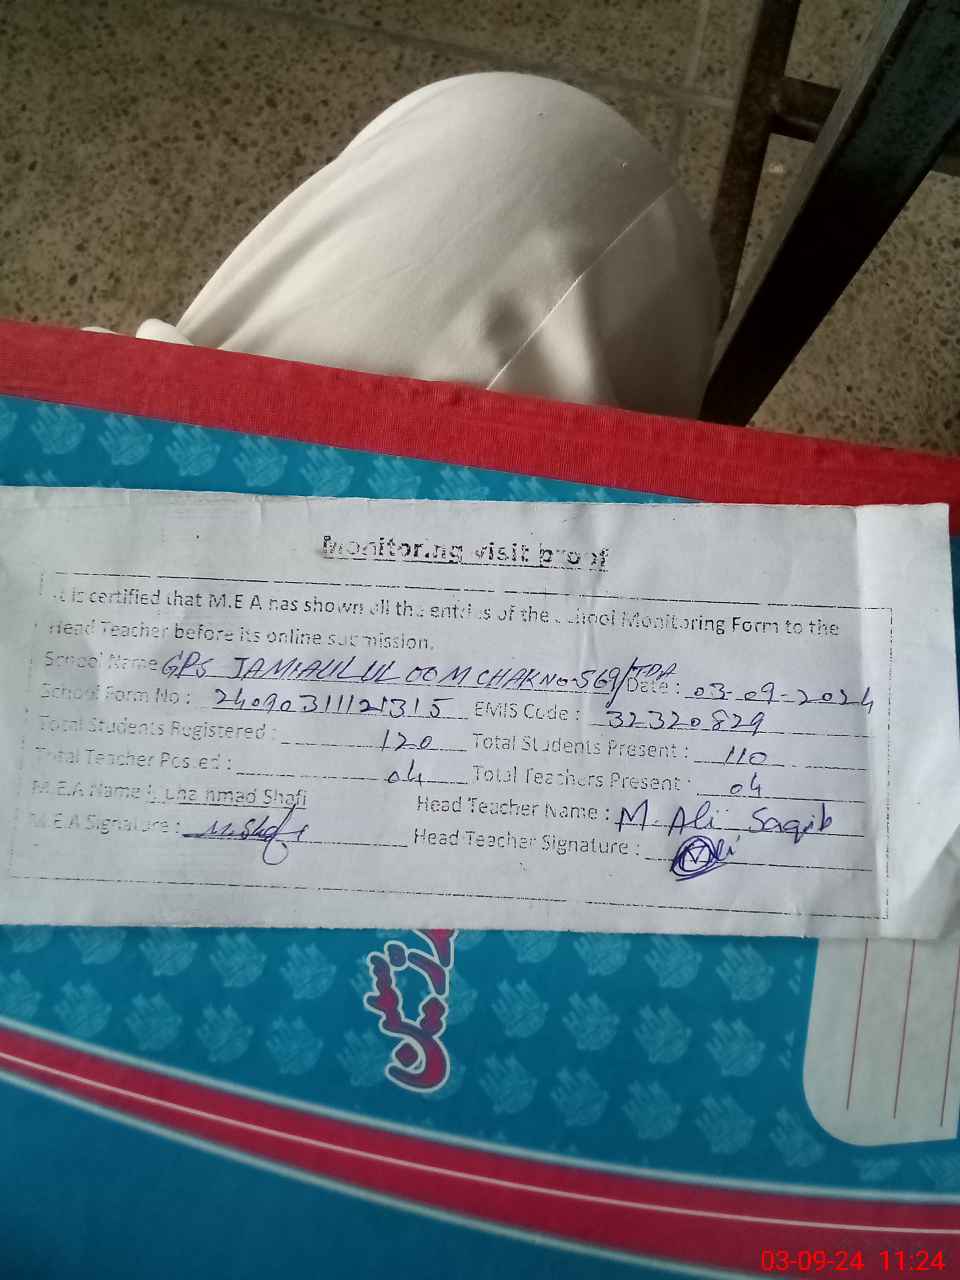 Monitoring visit proof
It is certified that M.E A has shown all the entries of the School Monitoring Form to the
Head Teacher before its online submission.
School Name GPS JAMIAULULOOM CHAK No-569/TDA Date : 03-09-2024
School Form No : 24090311121315 EMIS Code : 32320829
Total Students Registered : 120 Total Students Present : 110
Total Teacher Posted : 04 Total Teachers Present : 04
M.E.A Name : Muhammad Shafi Head Teacher Name : M. Ali Saqib
M.E.A Signature : M. Shafi Head Teacher Signature : Ali
03-09-24 11:24